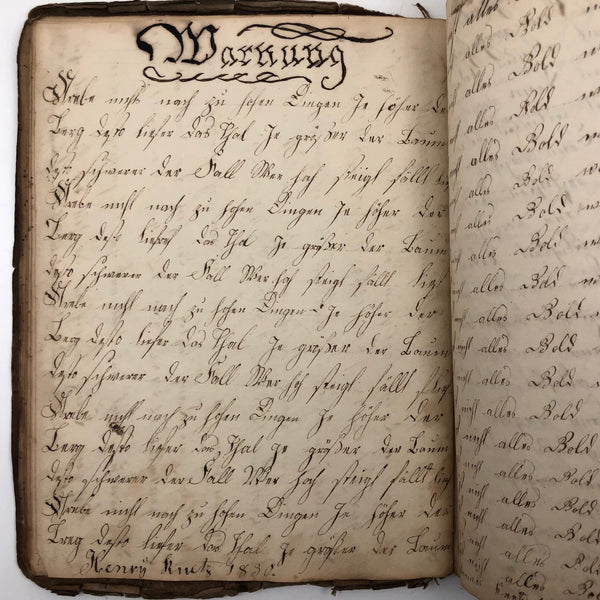 Warnung
Strebe nicht nach zu hohen Dingen Je höher de
Berg desto tiefer das Thal Je größer der Baum
desto schwerer der Fall Wer hoch steigt fällt
Strebe nicht nach zu hohen Dingen Je höher der
Berg desto tiefer das Thal Je größer der Baum
desto schwerer der Fall Wer hoch steigt fällt
Strebe nicht nach zu hohen Dingen Je höher der
Berg desto tiefer das Thal Je größer der Baum
desto schwerer der Fall Wer hoch steigt fällt
Strebe nicht nach zu hohen Dingen Je höher der
Berg desto tiefer das Thal Je größer der Baum
desto schwerer der Fall Wer hoch steigt fällt
Strebe nicht nach zu hohen Dingen Je höher der
Berg desto tiefer das Thal Je größer der Baum
Henry 1830.
alles Gold
nicht alles Gold
nicht alles Gold
nicht alles Gold
nicht alles Gold
nicht alles Gold
nicht alles Gold
nicht alles Gold
nicht alles Gold
nicht alles Gold
nicht alles Gold
nicht alles Gold
nicht alles Gold
nicht alles Gold
nicht alles Gold